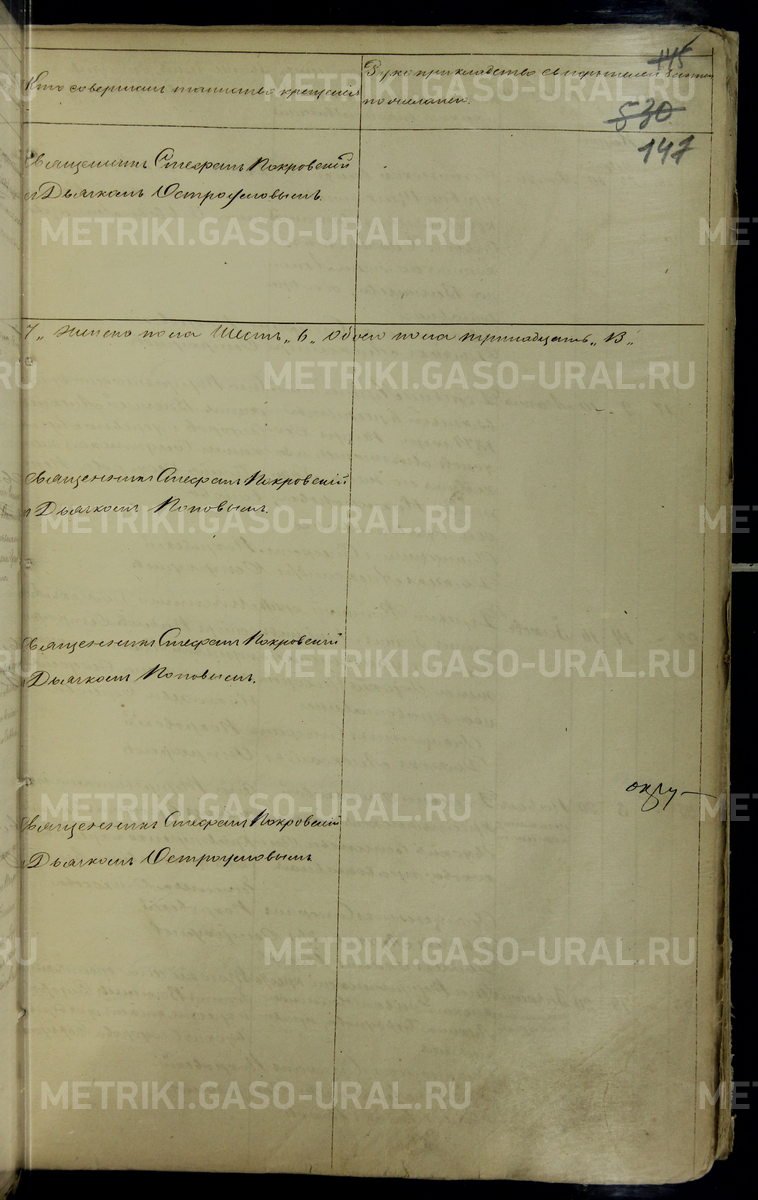 145
530
147
Кто совершал таинство крещенія
Рукоприкладство свидетелей записи
по желанію.
Священникъ Стефанъ Покровскій
съ Дьячкомъ Остроумовымъ.
7„ женско пола Шесть„ 6„ обоего пола тринадцать„ 13„
Священникъ Стефанъ Покровскій
Дьячкомъ Поповымъ.
Священникъ Стефанъ Покровскій
Дьячкомъ Поповымъ.
Священникъ Стефанъ Покровскій
Дьячкомъ Остроумовымъ
METRIKI.GASO-URAL.RU